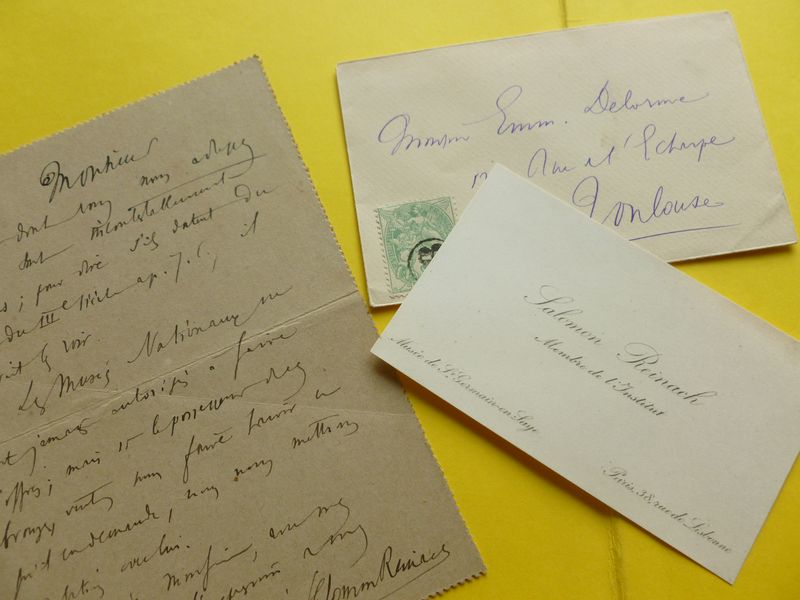 Monsieur
dont vous nous adressez
sont incontestablement
; pour dire s'ils datent du
du IIIe siècle ap. J. C., il
les voir.
Les Musées Nationaux ne
jamais autorisés à faire
offres; mais si le possesseur des
bronzes veut nous faire savoir ce
qu'il en demande, nous nous mettrons
avec lui.
Monsieur,
Salomon Reinach
Monsieur Emm. Delorme
Rue de l'Echarpe
Toulouse
Salomon Reinach
Membre de l'Institut
Musée de St Germain-en-Laye
Paris, 38, rue de Lisbonne